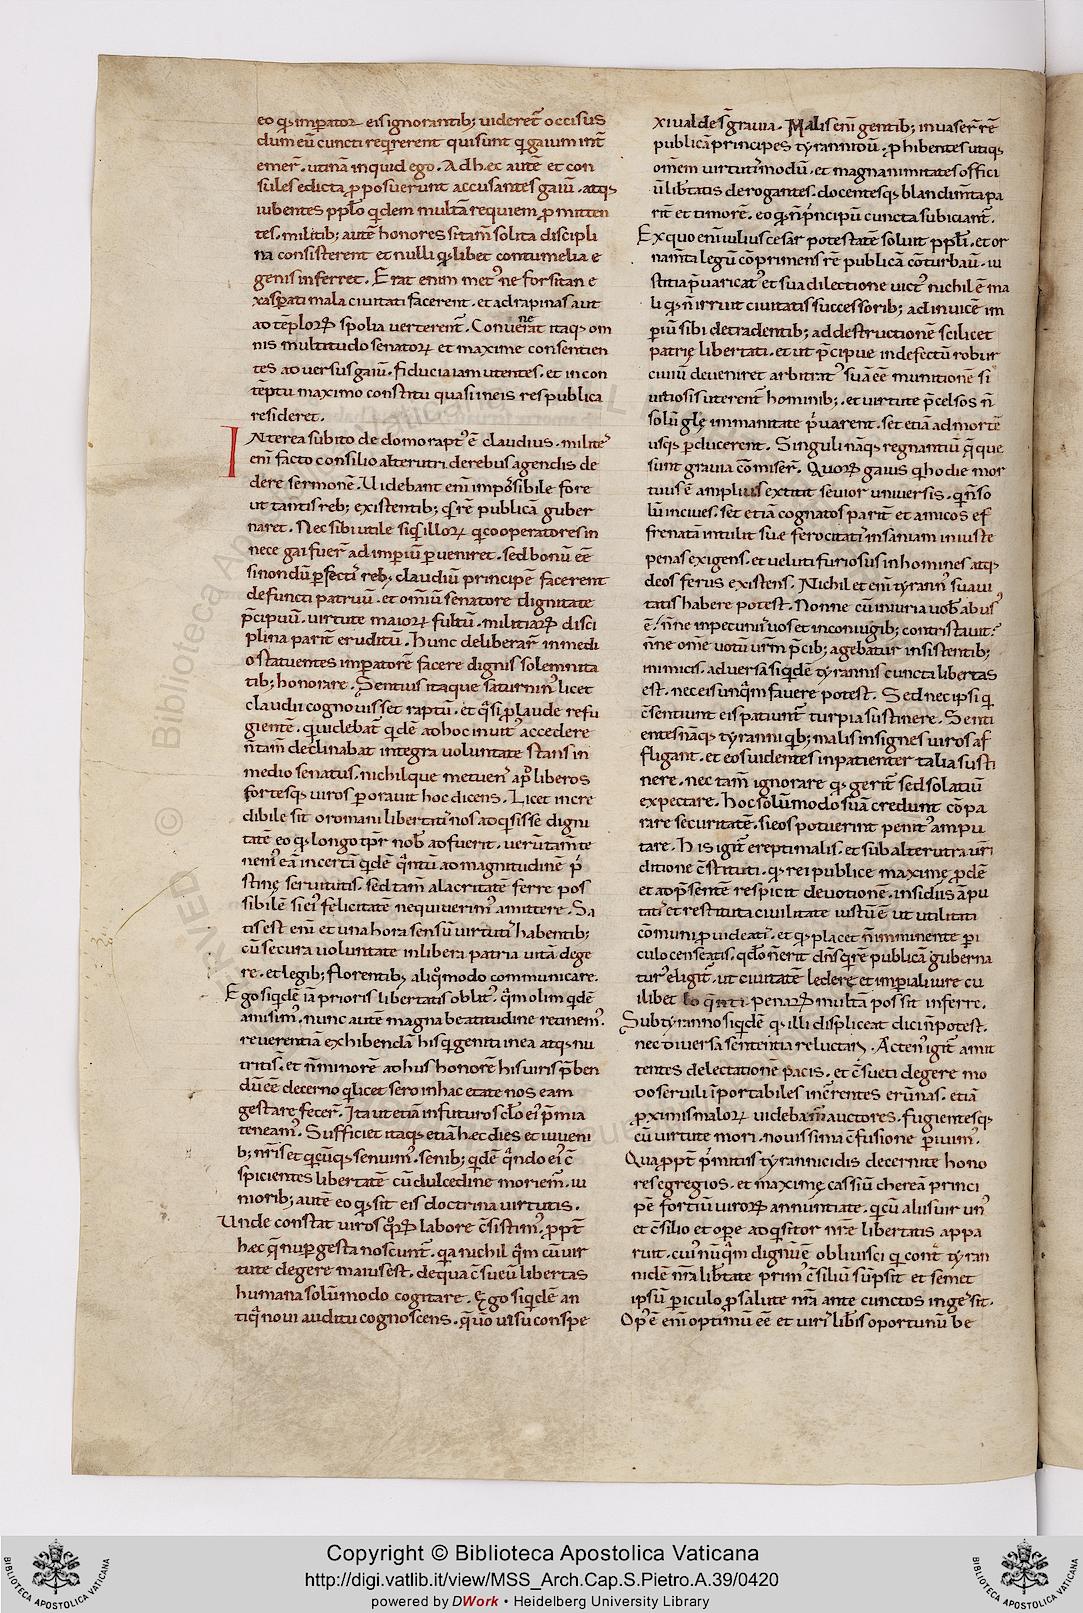 eo qđ imꝑator eis ignorantib; uideret̄ occisus
dum eū cuncti reqͥrerent qui sunt qͥ gaium int̄
emer̄. utinā inquid ego. Ad hęc autē et con
sules edicta ꝓposuerunt accusantes gaiū. atqꝫ
iubentes ppl̄o qͥdem multā requiem ꝓmitten
tes. militib; autē honores si tam̄ solita discipli
na consisterent et nulli qđlibet contumelia e
genis inferret. Erat enim metꝰ ne forsitan e
xasꝑati mala ciuitati facerent. et ad rapinas aut
ad tēploꝝ spolia uerterent̄. Conuenerat itaqꝫ om
nis multitudo senatoꝝ et maxime consentien
tes aduersus gaiū. fiducia iam utentes. et in con
tēptu maximo constitu quasi in eis res publica
resideret.
Interea subito de domo raptꝰ ē claudius. militeˢ
enī facto consilio alterutri de rebus agendis de
dere sermonē. Uidebant enī impossibile fore
ut tantis reb; existentib; qđ rē publicā guber
naret. Nec sibi utile si qđ illoꝝ qͥ cooperatores in
nece gai fuer̄ ad imperiū ꝑueniret. sed bonū eē
si nondū ꝑfectiˢ reb; claudiū principē facerent
defuncti patruū. et om̄iū senatore dignitate
p̄cipuū. uirtute maioꝝ fultū. militiaꝝ disci
plina parit̄ eruditū. Hunc deliberar̄ in medi
o statuentes imꝑatorē facere dignis solemnita
tib; honorare. Sentius itaque saturninꝰ licet
claudii cognouisset raptū. et qͣsi ꝓ laude refu
gientē. qui debat̄ qͥdē ad hoc inuitꝰ accedere
n̄ tam̄ declinabat integra uoluntate stans in
medio senatus. nichilque metuenˢ apđ liberos
fortesqꝫ uiros ꝑorauit hoc dicens. Licet incre
dibile sit o romani libertatiˢ nos adqͥsisse digni
tatē eo qđ longo tp̄r nob̄ adfuerit. ueruntam̄ te
nemꝰ eā incertā qͥdē qͣntū ad magnitudinē pͥ
stinę seruitutis. sed tam̄ alacritate ferre pos
sibilē si eiꝰ felicitatē nequiuerimꝰ amittere. Sa
tis est enī et una hora sensū uirtutiˢ habentib;
cū secura uoluntate in libera patria uitā dege
re. et legib; florentib; aliqͦ modo communicare.
Ego siqͥdē iā prioris libertatis oblitꝰ. qͣm olim qͥdē
amisimꝰ. nunc autē magna beatitudine retinemꝰ.
reuerentiā exhibendā his qͥ geniti in ea atqꝫ nu
triti sˢ. et n̄ minorē adhus honorē his uiris p̄ben
dū eē decerno qͥ licet sero in hac etate nos eam
gestare fecer̄. Ita ut etiā in futuro sc̄lo eiꝰ p̄mia
teneamꝰ. Sufficiet itaqꝫ etiā hęc dies et iuueni
b; nr̄is et qͥcūqꝫ senuimꝰ. senib; qͥdē qͣndo eiꝰ c̄
spicientes libertatē cū dulcedine moriemꝰ. iu
niorib; autē eo qđ sit eis doctrina uirtutis.
Unde constat uiros qͦꝝ labore c̄sistimꝰ. ꝓpt̄
hęc qͣ nuꝑ gesta noscunt̄. qͥa nichil qͣm cū uir
tute degere maius est. de qua c̄sueuˀ libertas
humana solūmodo cogitare. Ego siqͥdē an
tiqͣ noui auditu cognoscens. qͣ uˀo uisu conspe
xi ualde sˢ grauia. Malis enī gentib; inuaser̄ rē
publicā principes tyrannidū. ꝓhibentes utiqꝫ
om̄em uirtutiˢ modū. et magnanimitates offici
ū lib̄tatis derogantes. docentesqꝫ blandim̄ta pa
rit̄ et timorē. eo qđ n̄ pͥncipū cuncta subiciant̄.
Ex quo enī iulius cesar potestatē soluit ppl̄i. et or
nam̄ta legū cōprimens rē publicā cōturbauˀ. iu
stitia p̄uaricatꝰ et sua dilectione uictꝰ nichil ē ma
li qđ n̄ irruit ciuitatis successorib; ad inuicē im
ꝑiū sibi de tradentib; ad destructionē scilicet
patrię libertati. et ut p̄cipue in defectū roburˢ
ciuiū deueniret arbitratꝰ suā eē munitionē si
uitiosis uterent̄ hominib;. et uirtute p̄celsos n̄
solū glę immanitate pͥuarent. set etiā ad mortē
usqꝫ ꝑducerent. Singuli nāqꝫ regnantiū qͣ que
sunt grauia cōmiser̄. Quoꝝ gaius qͥ hodie mor
tuus ē amplius extitit seuior uniuersis. qͥ n̄ so
lū in ciues. set etiā cognatos parit̄ et amicos ef
frenatā intulit suę ferocitatiˢ insaniam iniuste
penas exigens. et ueluti furiosus in homines atqꝫ
deos ferus existens. Nichil etenī tyrannꝰ suaui
tatis habere potest. Nonne cū iniuria uob̄ abusꝰ
ē. n̄ne in pecuniiˢ uos et in coniugib; contristauit.
n̄ne om̄e uotū urm̄ p̄cib; agebatur insistentib;
inimicis. aduersa siqͥdē tyrannis cuncta libertas
est. nec eis unqͣm fauere potest. Sed nec ipsi qͥ
c̄sentiunt eis patiunt̄ turpia sustinere. Senti
entes nāqꝫ tyranni qͥb; malis insignes uiros af
fligant. et eos uidentes inpatienter talia susti
nere. nec tam̄ ignorare qđ gerit̄ sed solatiū
expectare. hoc solūmodo suā credunt cōpa
rare securitatē. si eos potuerint penitꝰ ampu
tare. His igit̄ erepti malis. et sub alterutra uirˢ
ditione c̄stituti. qđ rei publice maximę ꝓdē
et ad p̄sentē respicit deuotionē. insidiis āpu
tatiˢ et restituta ciuilitate iustū ē ut utilitati
cōmuni ꝓuideatiˢ. et qđ placet n̄ imminente ꝑi
culo censeatis. qđ n̄ erit dn̄s qͥ rē publicā guberna
turˢ eligit̄. ut ciuitatē ledere et imꝑiali iure cu
ilibet penaꝝ multā possit inferre.
Sub tyranno siqͥdē qđ illi displiceat dici n̄ potest.
nec diuersa sententia reluctari. Actenꝰ igit̄ amit
tentes delectationē pacis. et c̄sueti degere mo
do seruili īportabiles incˀrentes erūnas. etiā
ꝓximis maloꝝ uidebamꝰ auctores. fugientesqꝫ
cū uirtute mori. nouissima c̄fusione ꝑiuimꝰ.
Quapropt̄ pͥmitus tyrannicidis decernite hono
res egregios. et maximę cassiū chereā princi
pē fortiū uiroꝝ annuntiate. qͥ cū aliis uir unꝰ
et c̄silio et oꝑe adqͥsitor nr̄ae libertatis appa
ruit. cuiꝰ nūqͣm dignū ē obliuisci qͥ contͣ tyran
nidē nr̄a lib̄tate primꝰ c̄siliū sūpsit et semet
ipsū ꝑiculo ꝓ salute nr̄a ante cunctos ingessit.
Opꝰ ē enī optimū eē et uiriˢ lib̄is oportunū be
Copyright © Biblioteca Apostolica Vaticana
http://digi.vatlib.it/view/MSS_Arch.Cap.S.Pietro.A.39/0420
powered by DWork • Heidelberg University Library